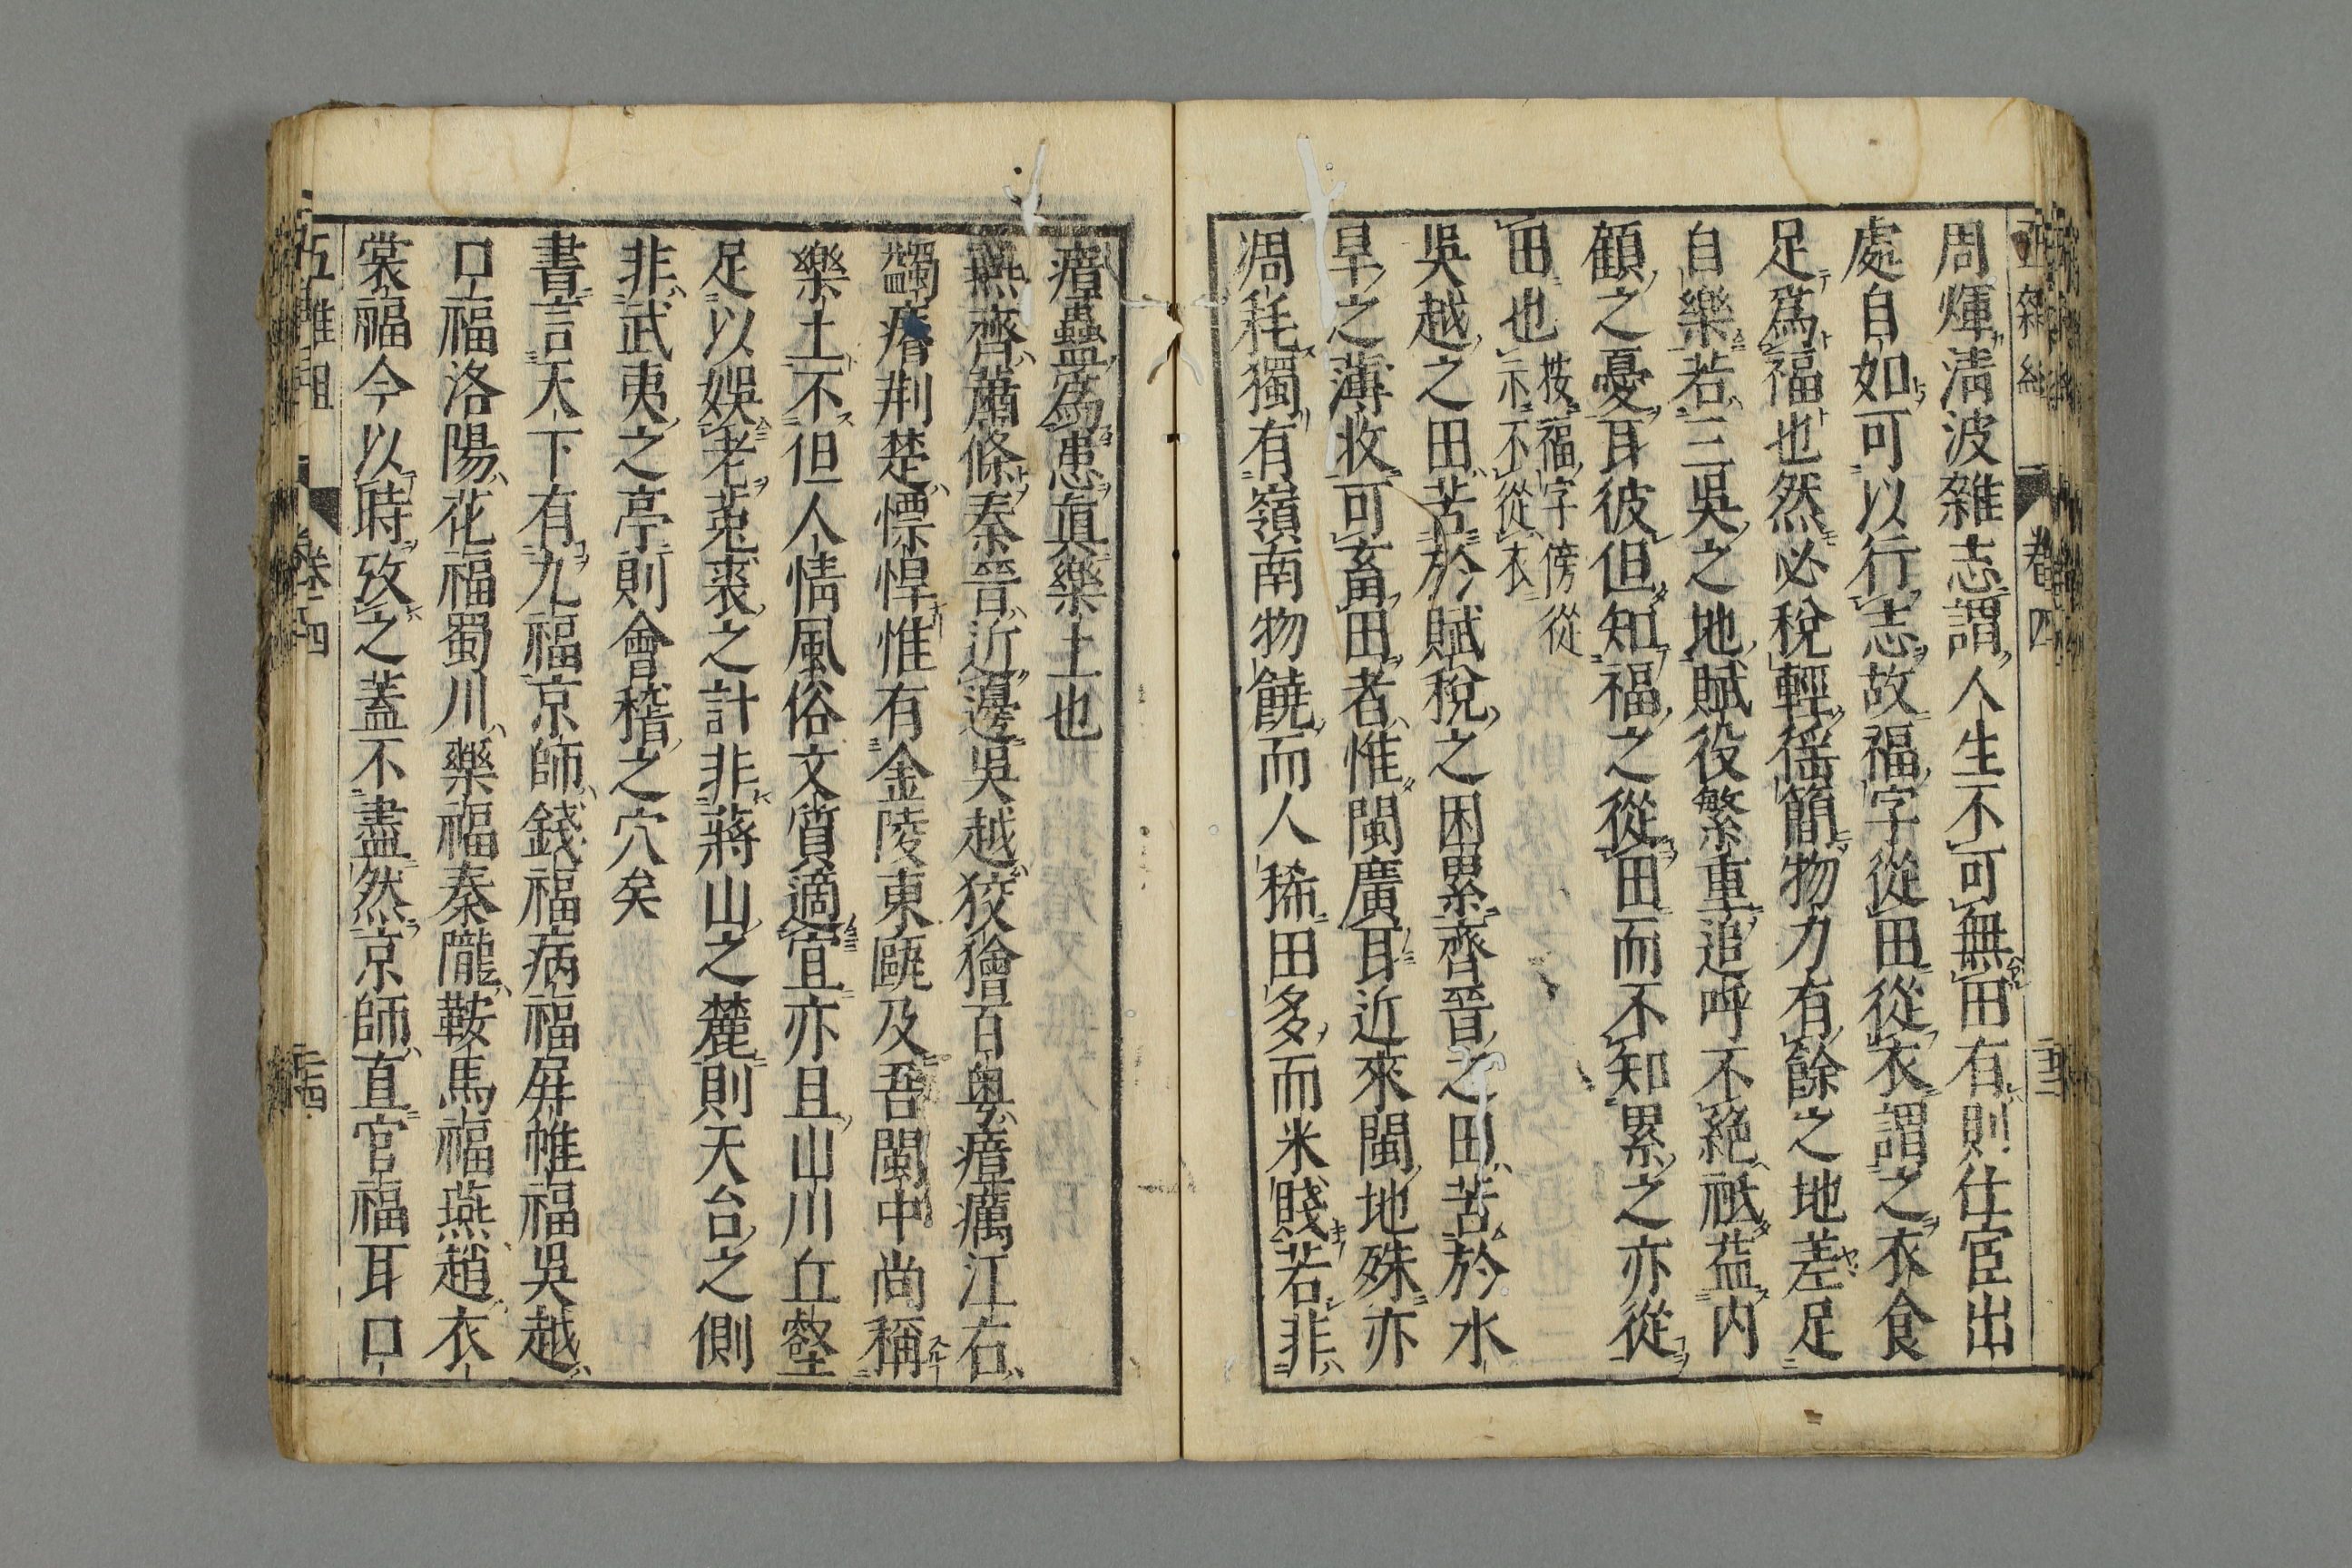 周煇清波雜志謂人生不可無田有則仕宦出
處自如可以行志故福字從田從衣謂之衣食
足爲福也然必稅輕徭簡物力有餘之地差足
自樂若三吳之地賦役繁重追呼不絕祇益內
顧之憂耳彼但知福之從田而不知累之亦從
田也按福字傍從
示不從衣
吳越之田苦於賦稅之困累齊晉之田苦於水
旱之薄收可畜田者惟閩廣耳近來閩地殊亦
凋耗獨有嶺南物饒而人稀田多而米賤若非
瘴蠱爲患眞樂土也
燕齊蕭條秦晉近邊吳越狡獪百粵瘴癘江右
蠲瘠荆楚慓悍惟有金陵東甌及吾閩中尚稱
樂土不但人情風俗文質適宜亦且山川丘壑
足以娛老菟裘之計非蔣山之麓則天台之側
非武夷之亭則會稽之穴矣
書言天下有九福京師錢福病福屛帷福吳越
口福洛陽花福蜀川藥福秦隴鞍馬福燕趙衣
裳福今以時攷之蓋不盡然京師直官福耳口
五雜組
卷四
五雜組
卷四